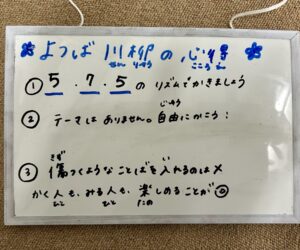 よつば 川柳 の 心得
せん りゅう こころ え
① 5 . 7 . 5 の リズムでかきましょう
じゆう
② テーマはありません。自由にかこう!
きず い
③ 傷つくようなことばを入れるのは×
かく人も、みる人も、楽しめることが◎
ひと ひと たの